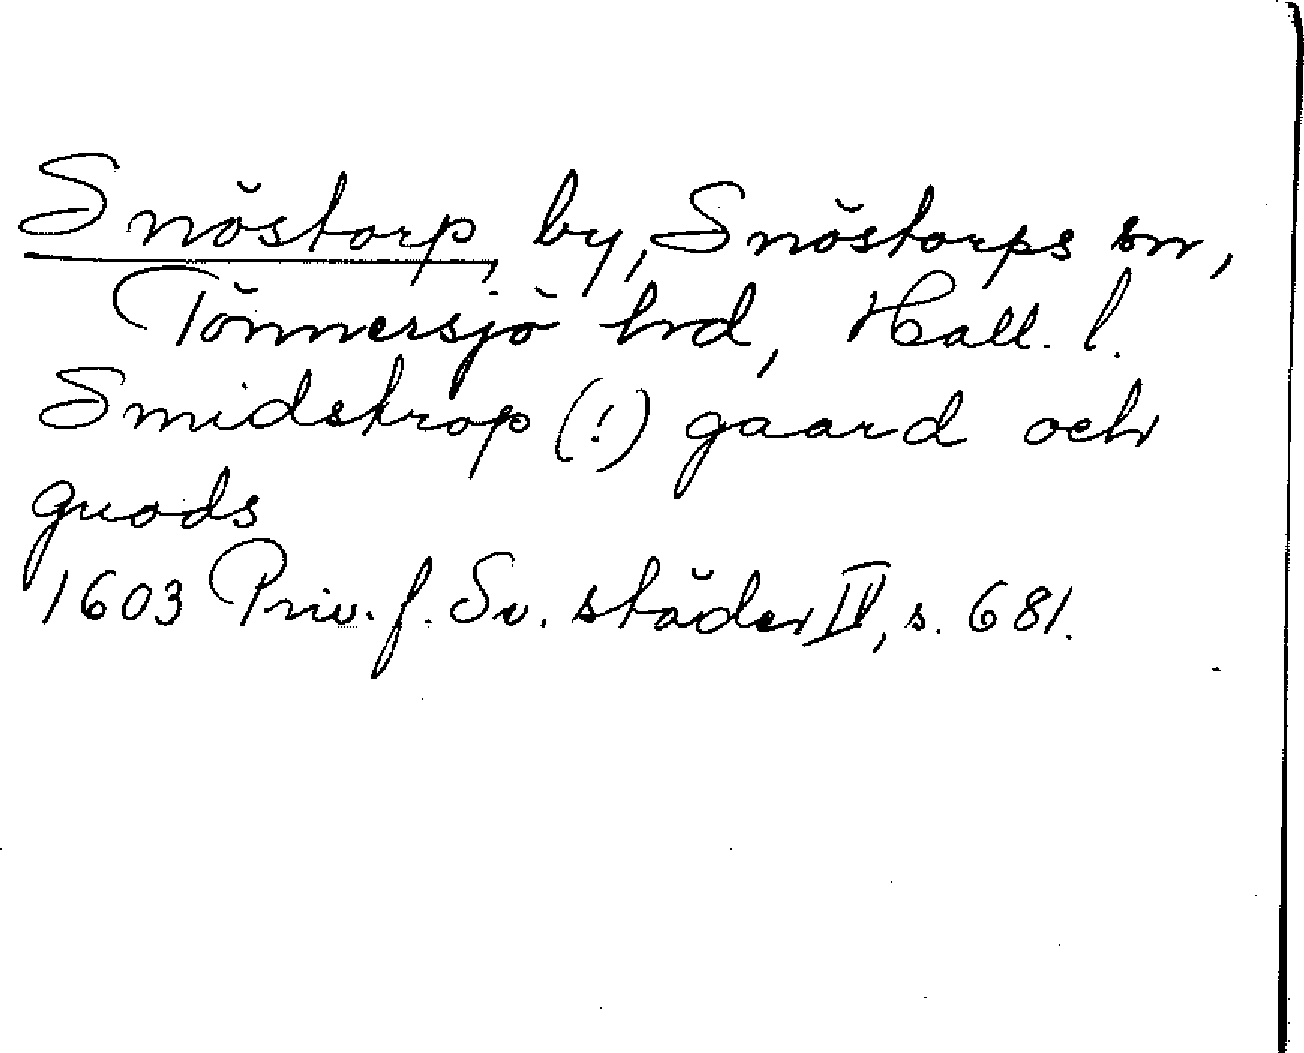 Snöstorp, by, Snöstorps sn,
Tönnersjö hrd, Hall. l.
Smidstrop (!) gaard och
guods
1603 Priv. f. Sv. städer II, s. 681.